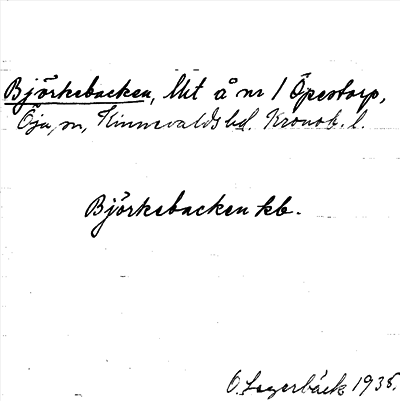 Björkebacken, lht å nr 1 Öpestorp,
Öja, sn, Kinnevalds hd. Kronob. l.
Björkebacken kb.
O. Lagerbäck 1935.